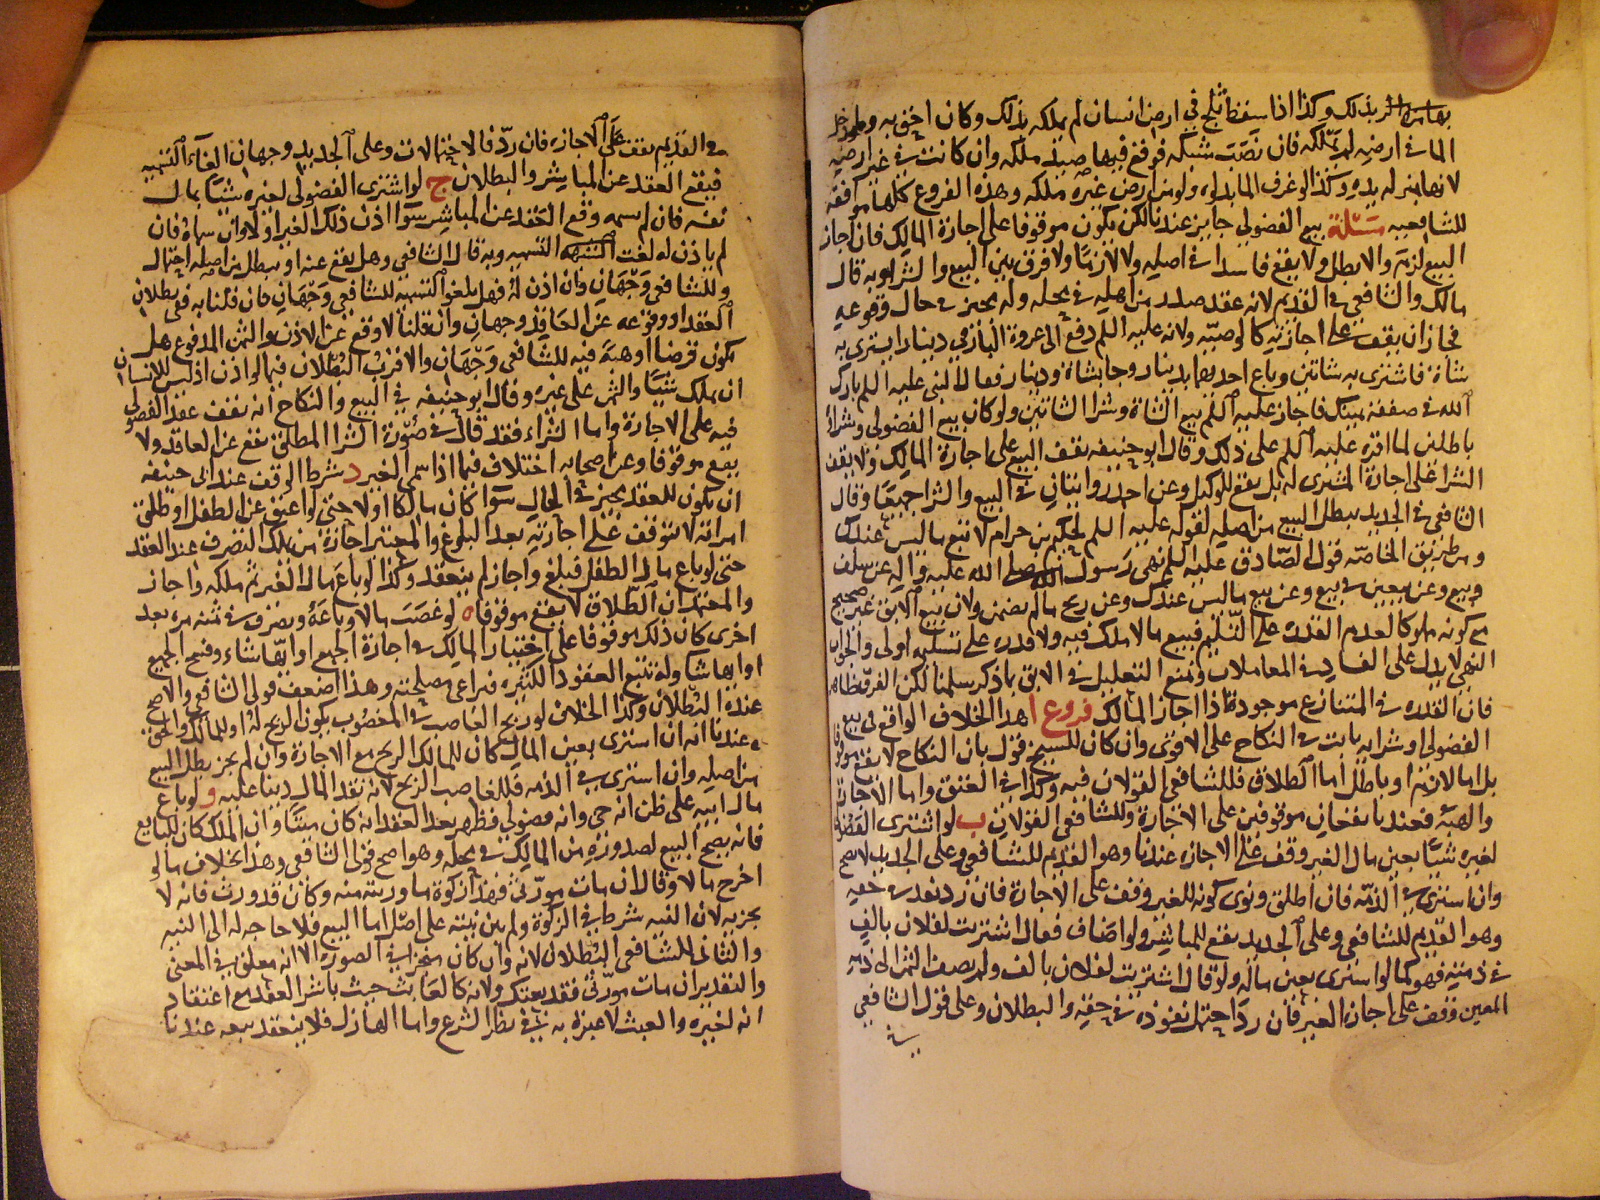 بذلك وكذا اذا سقط ثلج في ارض انسان لم يملكه بذلك وكان احق به ولو دخل
الماء في ارضه لم يملكه فان نصبت شبكه فوقع فيها صيد ملكه وان كانت في غير ارضه
لانها بمنزله يده وكذا لو غرف الماء بدلوه ولو من ارض غيره ملكه وهذه الفروع كلها موافقه
للشافعيه مسئلة بيع الفضولي جايز عندنا لكن يكون موقوفا على اجازة المالك فان اجاز
البيع لزم والا بطل ولا يقع فاسدا في اصله ولا لازما ولا فرق بين البيع والشراء وبه قال
مالك والشافعي في القديم لانه عقد صدر من اهله في محله وله مجيز في حال وقوعه
فجاز ان يقف على اجازته كالوصيه ولانه عليه السلم دفع الى عروة البارقي دينارا ليشتري به
شاة فاشترى به شاتين وباع احديهما بدينار وجا بشاة ودينار فقال النبي عليه السلم بارك
الله في صفقة يمينك فاجاز عليه السلم بيع الشاة وشرا الشاتين ولو كان بيع الفضولي وشراؤه
باطلين لما اقره عليه السلم على ذلك وقال ابو حنيفه يقف البيع على اجازة المالك ولا يقف
الشرا على اجازة المشترى له بل يقع للوكيل وعن احمد روايتان في البيع والشرا جميعا وقال
الشافعي في الجديد يبطل البيع من اصله لقوله عليه السلم لحكيم بن حزام لا تبع ما ليس عندك
ومن طريق الخاصه قول الصادق عليه السلم نهى رسول الله صلى الله عليه واله عن سلف
وبيع وعن بيعين في بيع وعن بيع ما ليس عندك وعن ربح ما لم يضمن ولان بيع الابق غير صحيح
مع كونه مملوكا لعدم القدرة على التسليم فبيع ما لا ملك فيه ولا قدرة على تسليمه اولى والجواب
النهي لا يدل على الفساد في المعاملات ونمنع التعليل في الابق بما ذكر سلمنا لكن الفرق ظاهر
فان القدره في المتنازع موجوده اذا اجاز المالك فروع ا هذا الخلاف الواقع في بيع
الفضولي وشرايه ثابت في النكاح على الاقوى وان كان للشيخ قول بان النكاح لا يقع موقوفا
بل اما لازم او باطل اما الطلاق فللشافعي القولان فيه وكذا في العتق واما الاجارة
والهبة فعندنا يقعان موقوفين على الاجازة وللشافعي القولان ب لو اشترى الفضولي
لغيره شيئا بعين مال الغير وقف على الاجازه عندنا وهو القديم للشافعي وعلى الجديد لا يصح
وان اشترى في الذمه فان اطلق ونوى كونه للغير وقف على الاجازة فان رد نفذ في حقه
وهو القديم للشافعي وعلى الجديد يقع للمباشر ولو اضاف فقال اشتريت لفلان بالف
في ذمته فهو كما لو اشترى بعين ماله ولو قال اشتريت لفلان بالف ولم يضف الثمن الى ذمه
المعين وقف على اجازة الغير فان رد احتمل نفوذه في حقه والبطلان وعلى قول الشافعي
في القديم يقف على الاجازه فان رد فالاحتمالات وعلى الجديد وجهان الغاء التسميه
فيقع العقد عن المباشر والبطلان ج لو اشترى الفضولي لغيره شيئا بمال
نفسه فان لم يسمه وقع العقد عن المباشر سوا اذن ذلك الغير او لا وان سماه فان
لم ياذن له لغت التسميه وبه قال الشافعي وهل يقع عنه او يبطل من اصله احتمال
وللشافعي وجهان وان اذن له فهل يلغو التسميه للشافعي وجهان فان قلنا به ففي بطلان
العقد او وقوعه عن العاقد وجهان وان قلنا لا وقع عن الاذن والثمن المدفوع هل
يكون قرضا او هبة فيه للشافعي وجهان والاقرب البطلان فيما لو اذن اذ ليس للانسان
ان يملك شيئا والثمن على غيره وقال ابو حنيفه في البيع والنكاح انه يقف عقد الفضولي
فيه على الاجازة واما الشراء فقد قال في صورة الشرا المطلق يقع عن العاقد ولا
يقع موقوفا وعن اصحابه اختلاف فيما اذا سمى الغير د شرط الوقف عند ابي حنيفه
ان يكون للعقد مجيز في الحال سوا كان مالكا او لا حتى لو اعتق عن الطفل او طلق
امراته لا تتوقف على اجازته بعد البلوغ والمعتبر اجازة من يملك التصرف عند العقد
حتى لو باع مال الطفل فبلغ واجاز لم ينعقد وكذا لو باع مال الغير ثم ملكه واجاز
والمعتمد ان الطلاق لا يقع موقوفا ه لو غصب مالا وباعه وتصرف في ثمنه مره بعد
اخرى كان ذلك موقوفا على اختيار المالك في اجازة الجميع او ايها شاء وفسخ الجميع
او ايها شا وله تتبع العقود الكثيره فيراعي مصلحته وهذا اضعف قولي الشافعي والاصح
عنده البطلان وكذا الخلاف لو ربح الغاصب في المغصوب يكون الربح له او للمالك والحق
عندنا انه ان اشترى بعين المال كان للمالك الربح مع الاجازة وان لم يجز بطل البيع
من اصله وان اشترى في الذمه فللغاصب الربح لانه نقد المال دينا عليه و لو باع
مال ابيه على ظن انه حي وانه فضولي فظهر بعد العقد انه كان ميتا وان الملك كان للبايع
فانه يصح البيع لصدوره من المالك في محله وهو اصح قولي الشافعي وهذا بخلاف ما لو
اخرج مالا وقال ان مات مورثي فهذا زكوة ما ورثته منه وكان قد ورث فانه لا
يجزيه لان النيه شرط في الزكوة ولم يبن نيته على اصل اما البيع فلا حاجه له الى النيه
والثاني للشافعي البطلان لانه وان كان منجزا في الصورة الا انه معلق في المعنى
والتقدير ان مات مورثي فقد بعتك ولانه كالعابث حيث باشر العقد مع اعتقاد
انه لغيره والعبث لا عبرة به في نظر الشرع واما الهازل فلا ينعقد بيعه عندنا